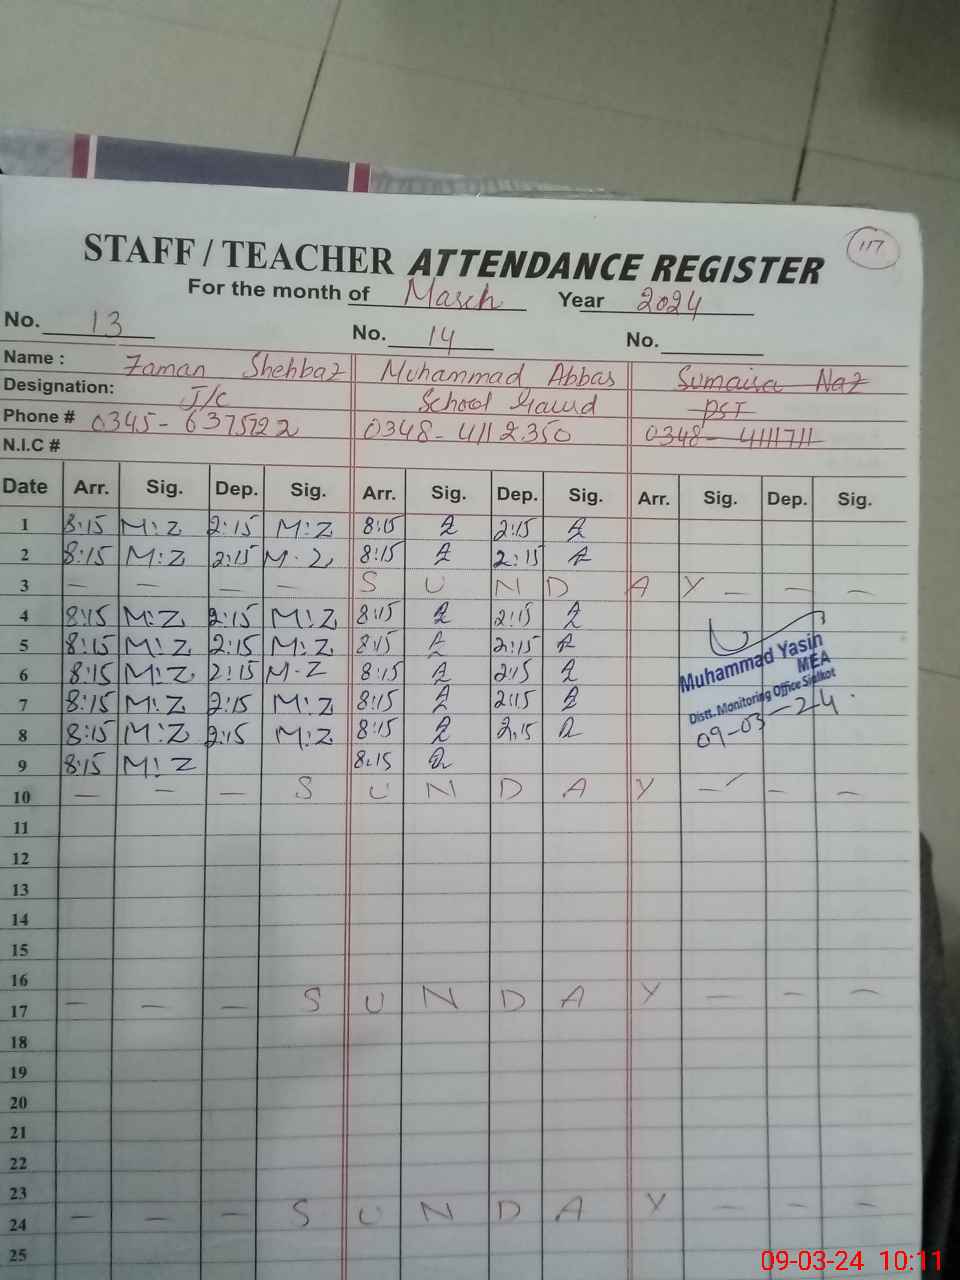 117
STAFF / TEACHER ATTENDANCE REGISTER
For the month of March Year 2024
No. 13 No. 14 No.
Name : Zaman Shehbaz Muhammad Abbas Sumaisa Naz
Designation: J/C School Gaurd PST
Phone # 0345-6375722 0348-4112350 0348-4111711
N.I.C #
Date Arr. Sig. Dep. Sig. Arr. Sig. Dep. Sig. Arr. Sig. Dep. Sig.
1 8:15 M:Z 2:15 M:Z 8:15 2:15
2 8:15 M:Z 2:15 M-Z 8:15 2:15
3 — — — — S U N D A Y — — —
4 8:15 M!Z 2:15 M!Z 8:15 2:15
5 8:15 M!Z 2:15 M!Z 8:15 2:15
6 8:15 M!Z 2:15 M-Z 8:15 2:15
7 8:15 M!Z 2:15 M!Z 8:15 2:15
8 8:15 M:Z 2:15 M:Z 8:15 2:15
9 8:15 M!Z 8:15
Muhammad Yasin
MEA
Distt. Monitoring Office Sialkot
09-03-24
10 — — — S U N D A Y — — —
11
12
13
14
15
16
17 — — — S U N D A Y — — —
18
19
20
21
22
23
24 — — — S U N D A Y — — —
25
09-03-24 10:11